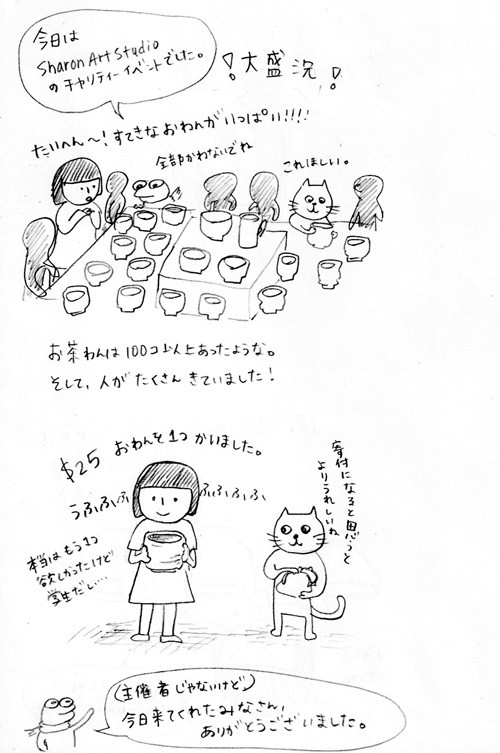 今日は
Sharon Art Studio
のチャリティーイベントでした。
!大盛況!
たいへん〜!すてきなおわんがいっぱい!!!!
全部かわないでね
これほしい。
お茶わんは100コ以上あったような。
そして、人がたくさんきていました!
$25 おわんを1つかいました。
うふふふ ふふふふ
本当はもう1つ
欲しかったけど
学生だし....
寄付になると思うと
よりうれしいね
(主催者じゃないけど)
今日来てくれたみなさん、
ありがとうございました。